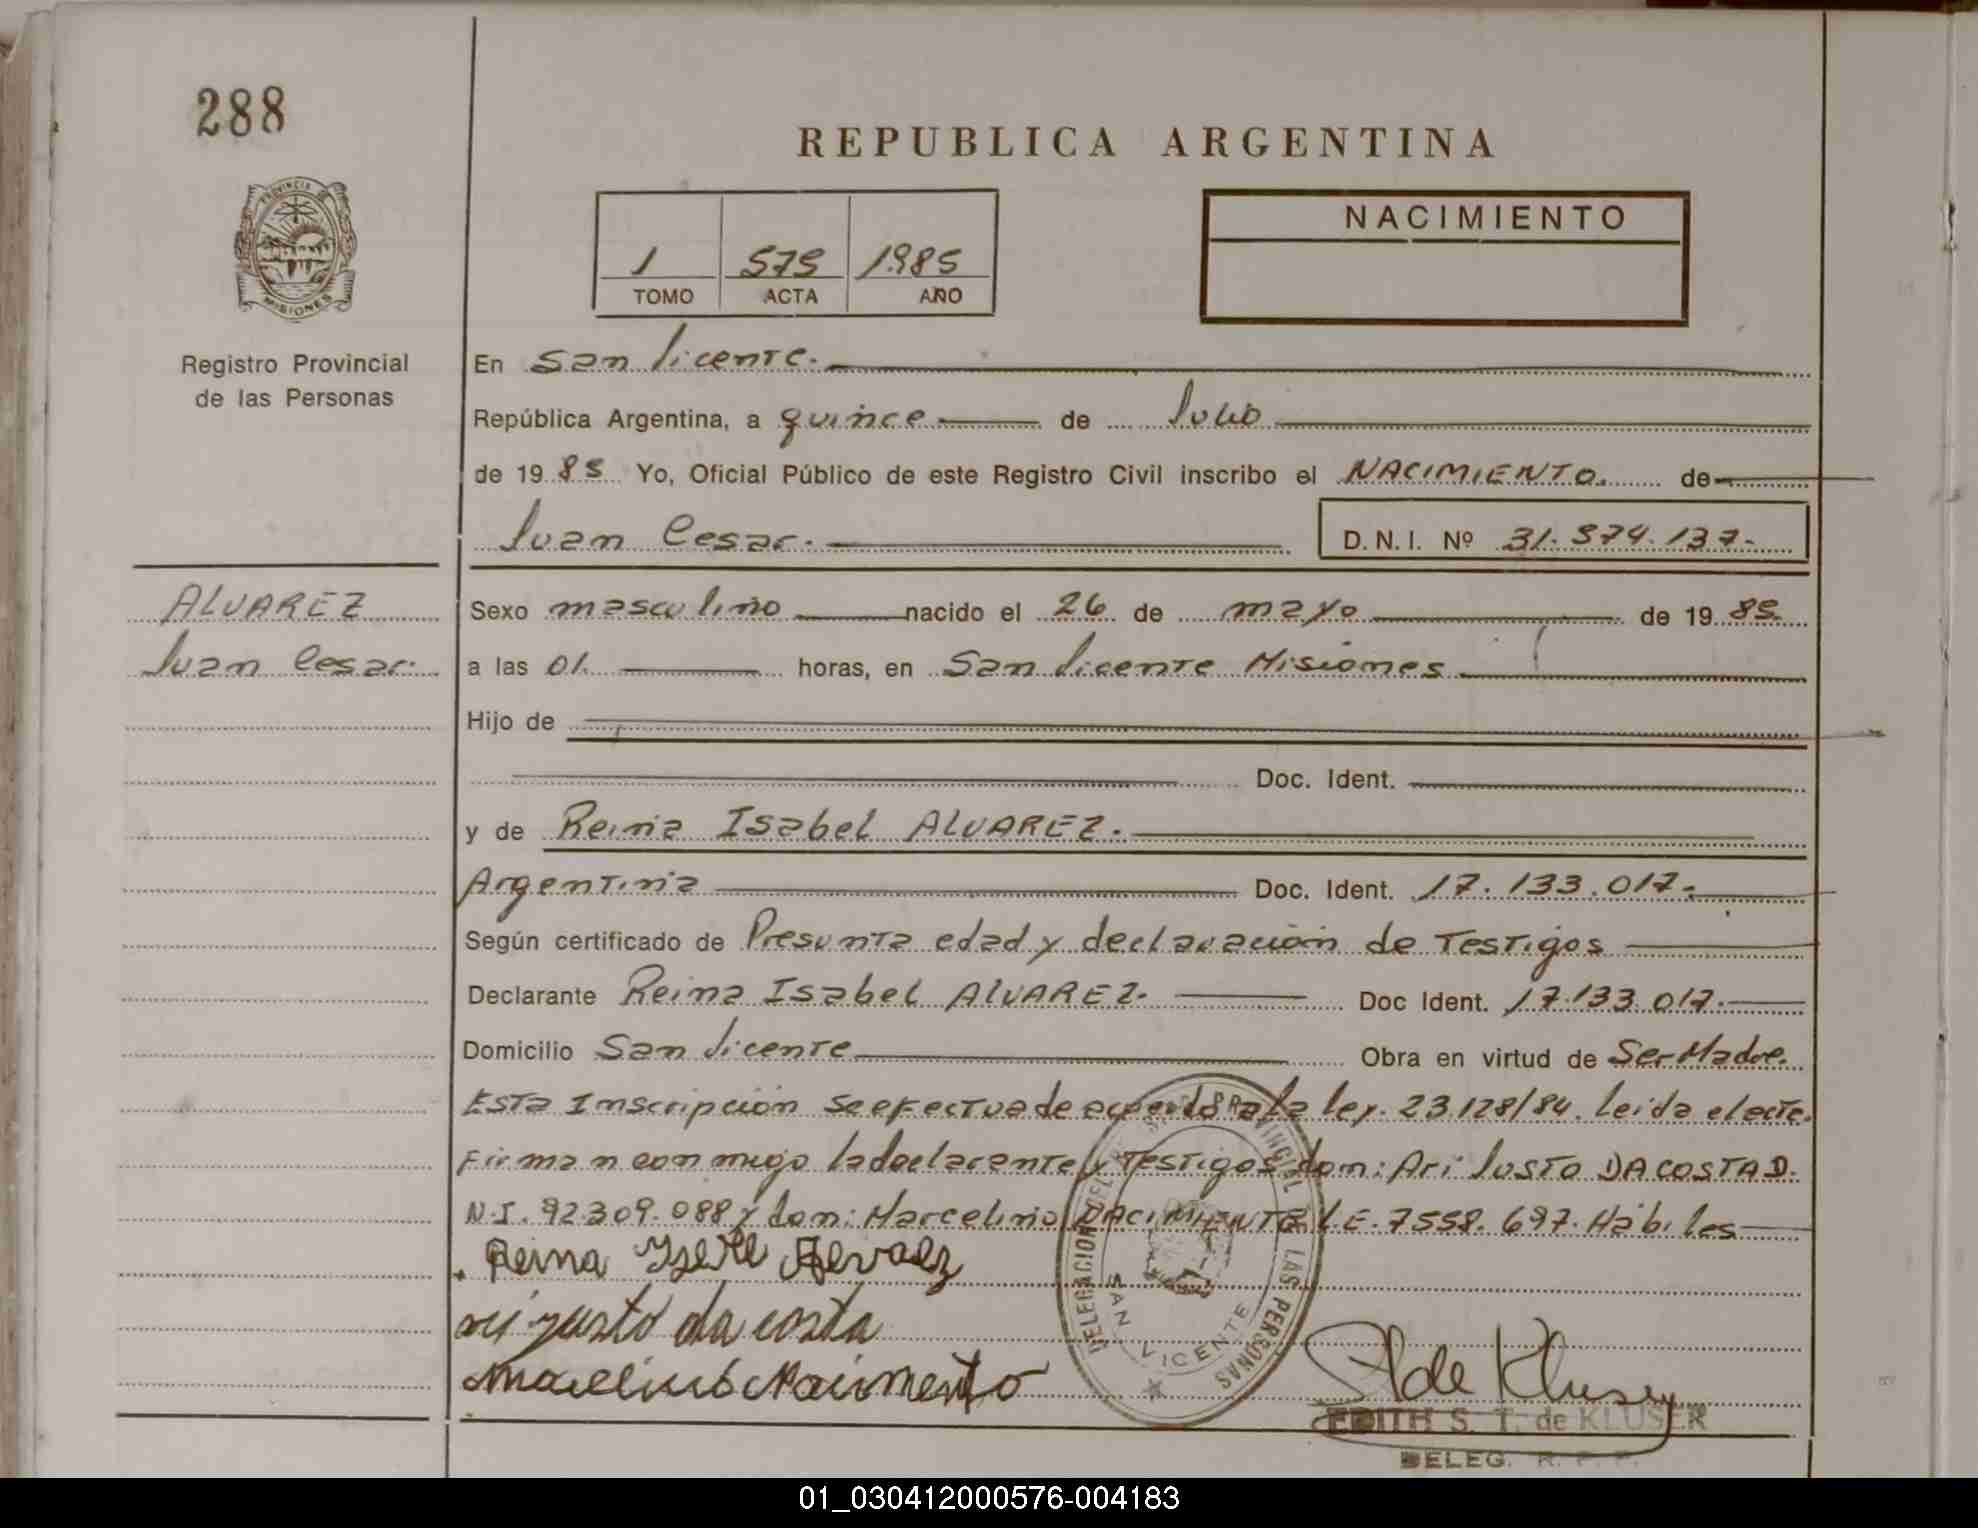 288
REPUBLICA ARGENTINA
PROVINCIA DE
MISIONES
Registro Provincial
de las Personas
1 575 1985
TOMO ACTA AÑO
NACIMIENTO
En San Vicente.
República Argentina, a quince de Julio
de 1985 Yo, Oficial Público de este Registro Civil inscribo el NACIMIENTO. de
Juan Cesar. D.N.I. Nº 31.574.137.
ALVAREZ
Juan Cesar.
Sexo masculino nacido el 26 de mayo de 1985.
a las 01. horas, en San Vicente Misiones
Hijo de
Doc. Ident.
y de Reina Isabel ALVAREZ.
Argentina Doc. Ident. 17.133.017.
Según certificado de Presunta edad y declaración de Testigos
Declarante Reina Isabel ALVAREZ. Doc Ident. 17.133.017.
Domicilio San Vicente Obra en virtud de Ser Madre.
Esta Inscripción se efectua de acuerdo a la ley. 23.128/84. Leida el acta.
Firman conmigo la declarante y Testigos don: Ari Justo DA COSTA D.
N.I. 92.309.088 y don: Marcelino NACIMIENTO L.E. 7558.697. Hábiles
Reina Alvarez
ari justo da costa
Marcelino Nacimento
DELEGACION DEL REGISTRO PROVINCIAL DE LAS PERSONAS
SAN VICENTE
de Kluser
EDITH S. T. de KLUSER
DELEG. R. P. P.
01_030412000576-004183